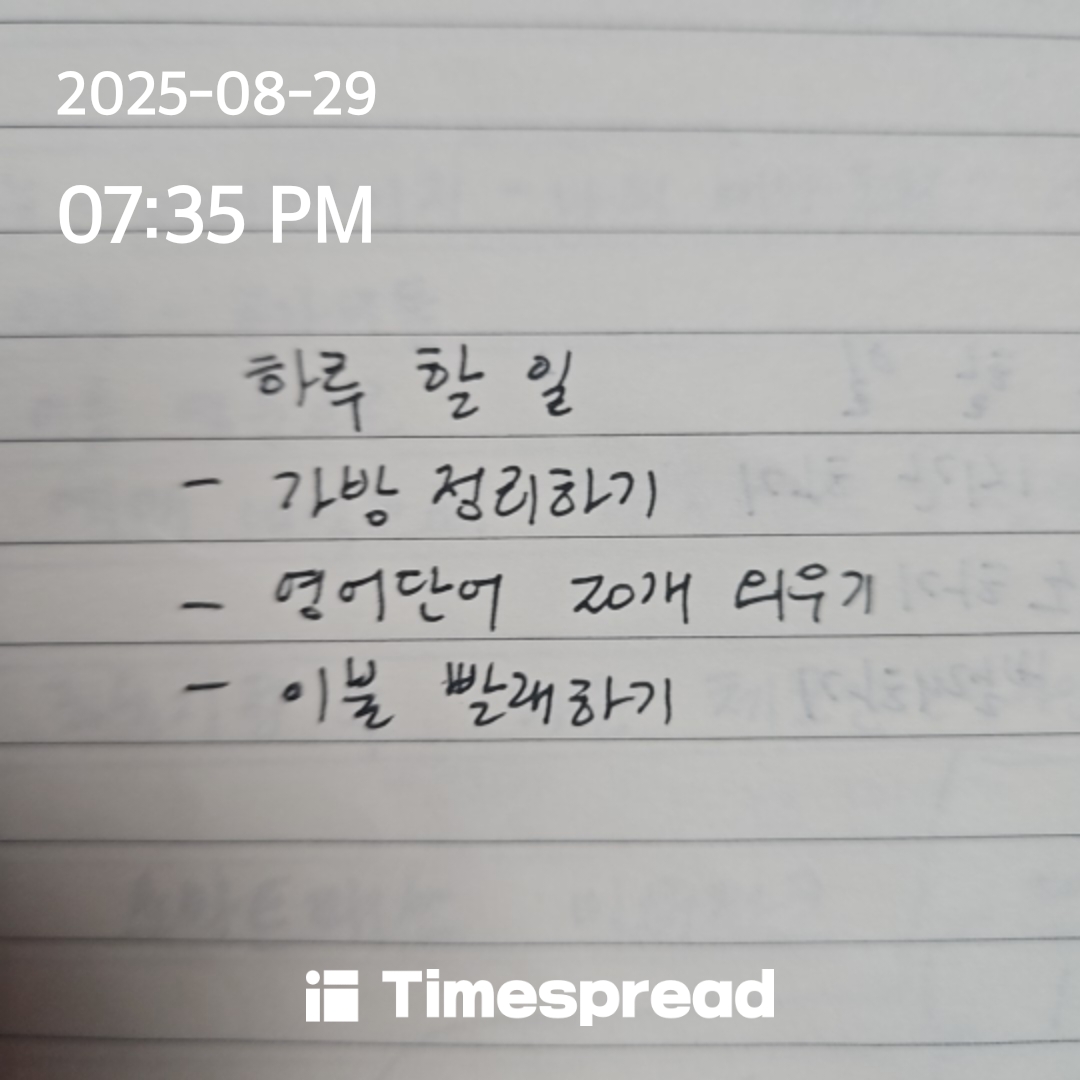 2025-08-29
07:35 PM
하루 할 일
- 가방 정리하기
- 영어단어 20개 외우기
- 이불 빨래하기
Timespread